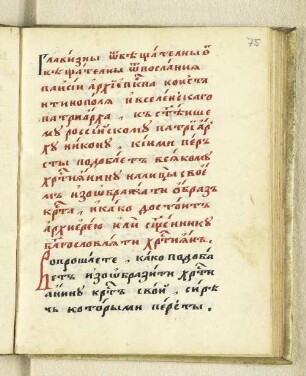 75
Главизны ѿвѣщателны ѿ
вѣщателны ѿ посланїя
паисїи архїепкпа констѧ
нтинополѧ и вселенскаго
патриарха , къ стѣише
мꙋ россїискомꙋ патрїар
хꙋ никонꙋ , кїими пер
сты подобаетъ всѧкомꙋ
хртїанинꙋ на лицы свое
мъ изоѡбражати ѡбразъ
крта , и како достоитъ
архиерею или сщенникꙋ
благословлѧти хртїанъ .
Вопрошаете , како подоба
етъ изоѡбразити хртї
анинꙋ кртъ свои , сирѣ
чь которыми персты .